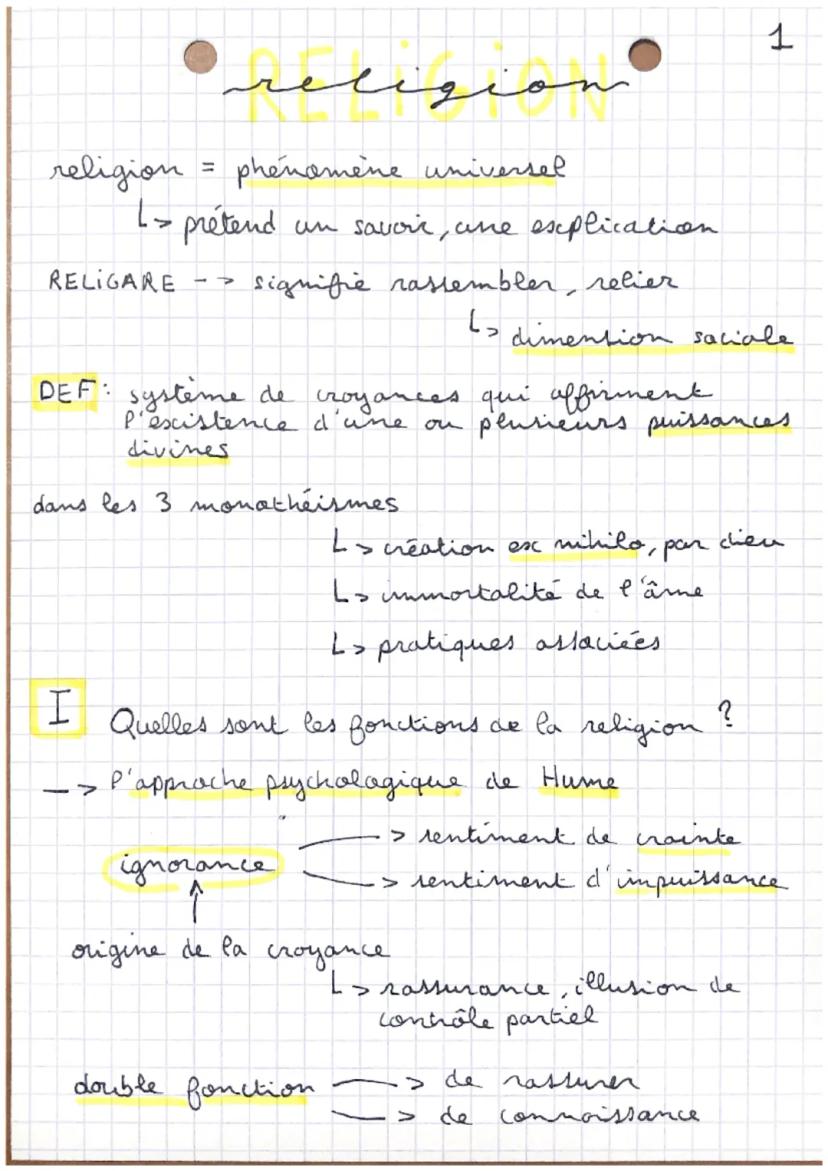 1
RELIGION
religion
religion = phénomène universel
↳ prétend un savoir, une explication
RELIGARE --> signifie rassembler, relier
↳ dimention sociale
DEF : système de croyances qui affirment
l'existence d'une ou plusieurs puissances
divines
dans les 3 monothéismes
↳ création ex nihilo, par dieu
↳ immortalité de l'âme
↳ pratiques associées
I Quelles sont les fonctions de la religion ?
—> l'approche psychologique de Hume
—> sentiment de crainte
ignorance
—> sentiment d'impuissance
↑
origine de la croyance
↳ rassurance, illusion de
contrôle partiel
double fonction —> de rassurer
—> de connaissance